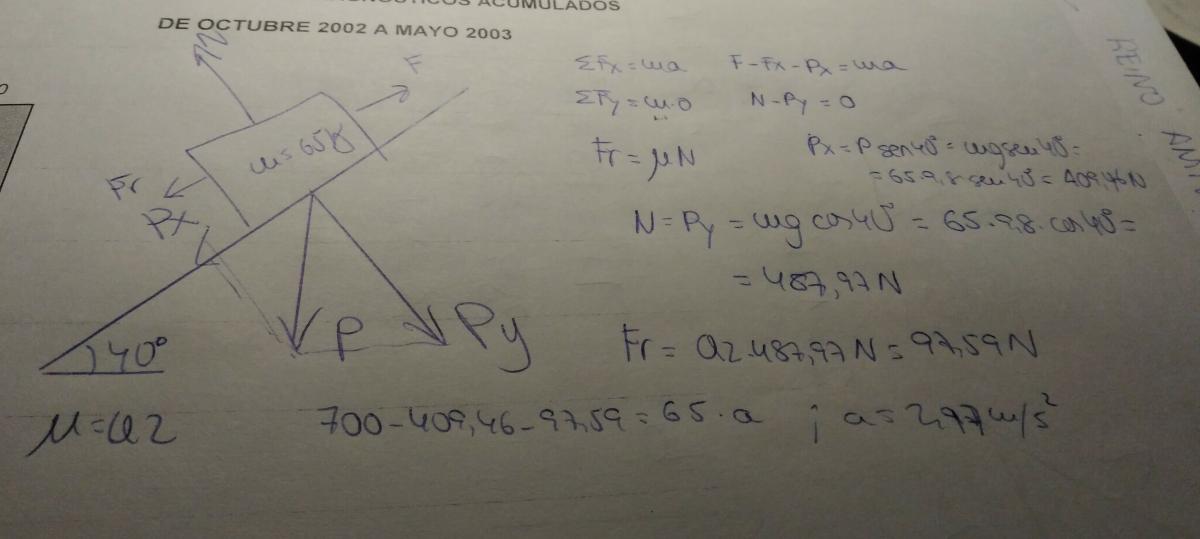 ACUMULADOS
DE OCTUBRE 2002 A MAYO 2003
N
F
m=65
Fr
Px
P
Py
40°
μ=0,2
ΣFx=ma F-Fx-Px=ma
ΣFy=m·0 N-Py=0
Fr=μN
Px=P sen40°=mgsen40°=
=65·9,8·sen40°=409,46N
N=Py=mg cos40°=65·9,8·cos40°=
=487,97N
Fr=0,2·487,97N=97,59N
700-409,46-97,59=65·a ; a=2,97m/s²